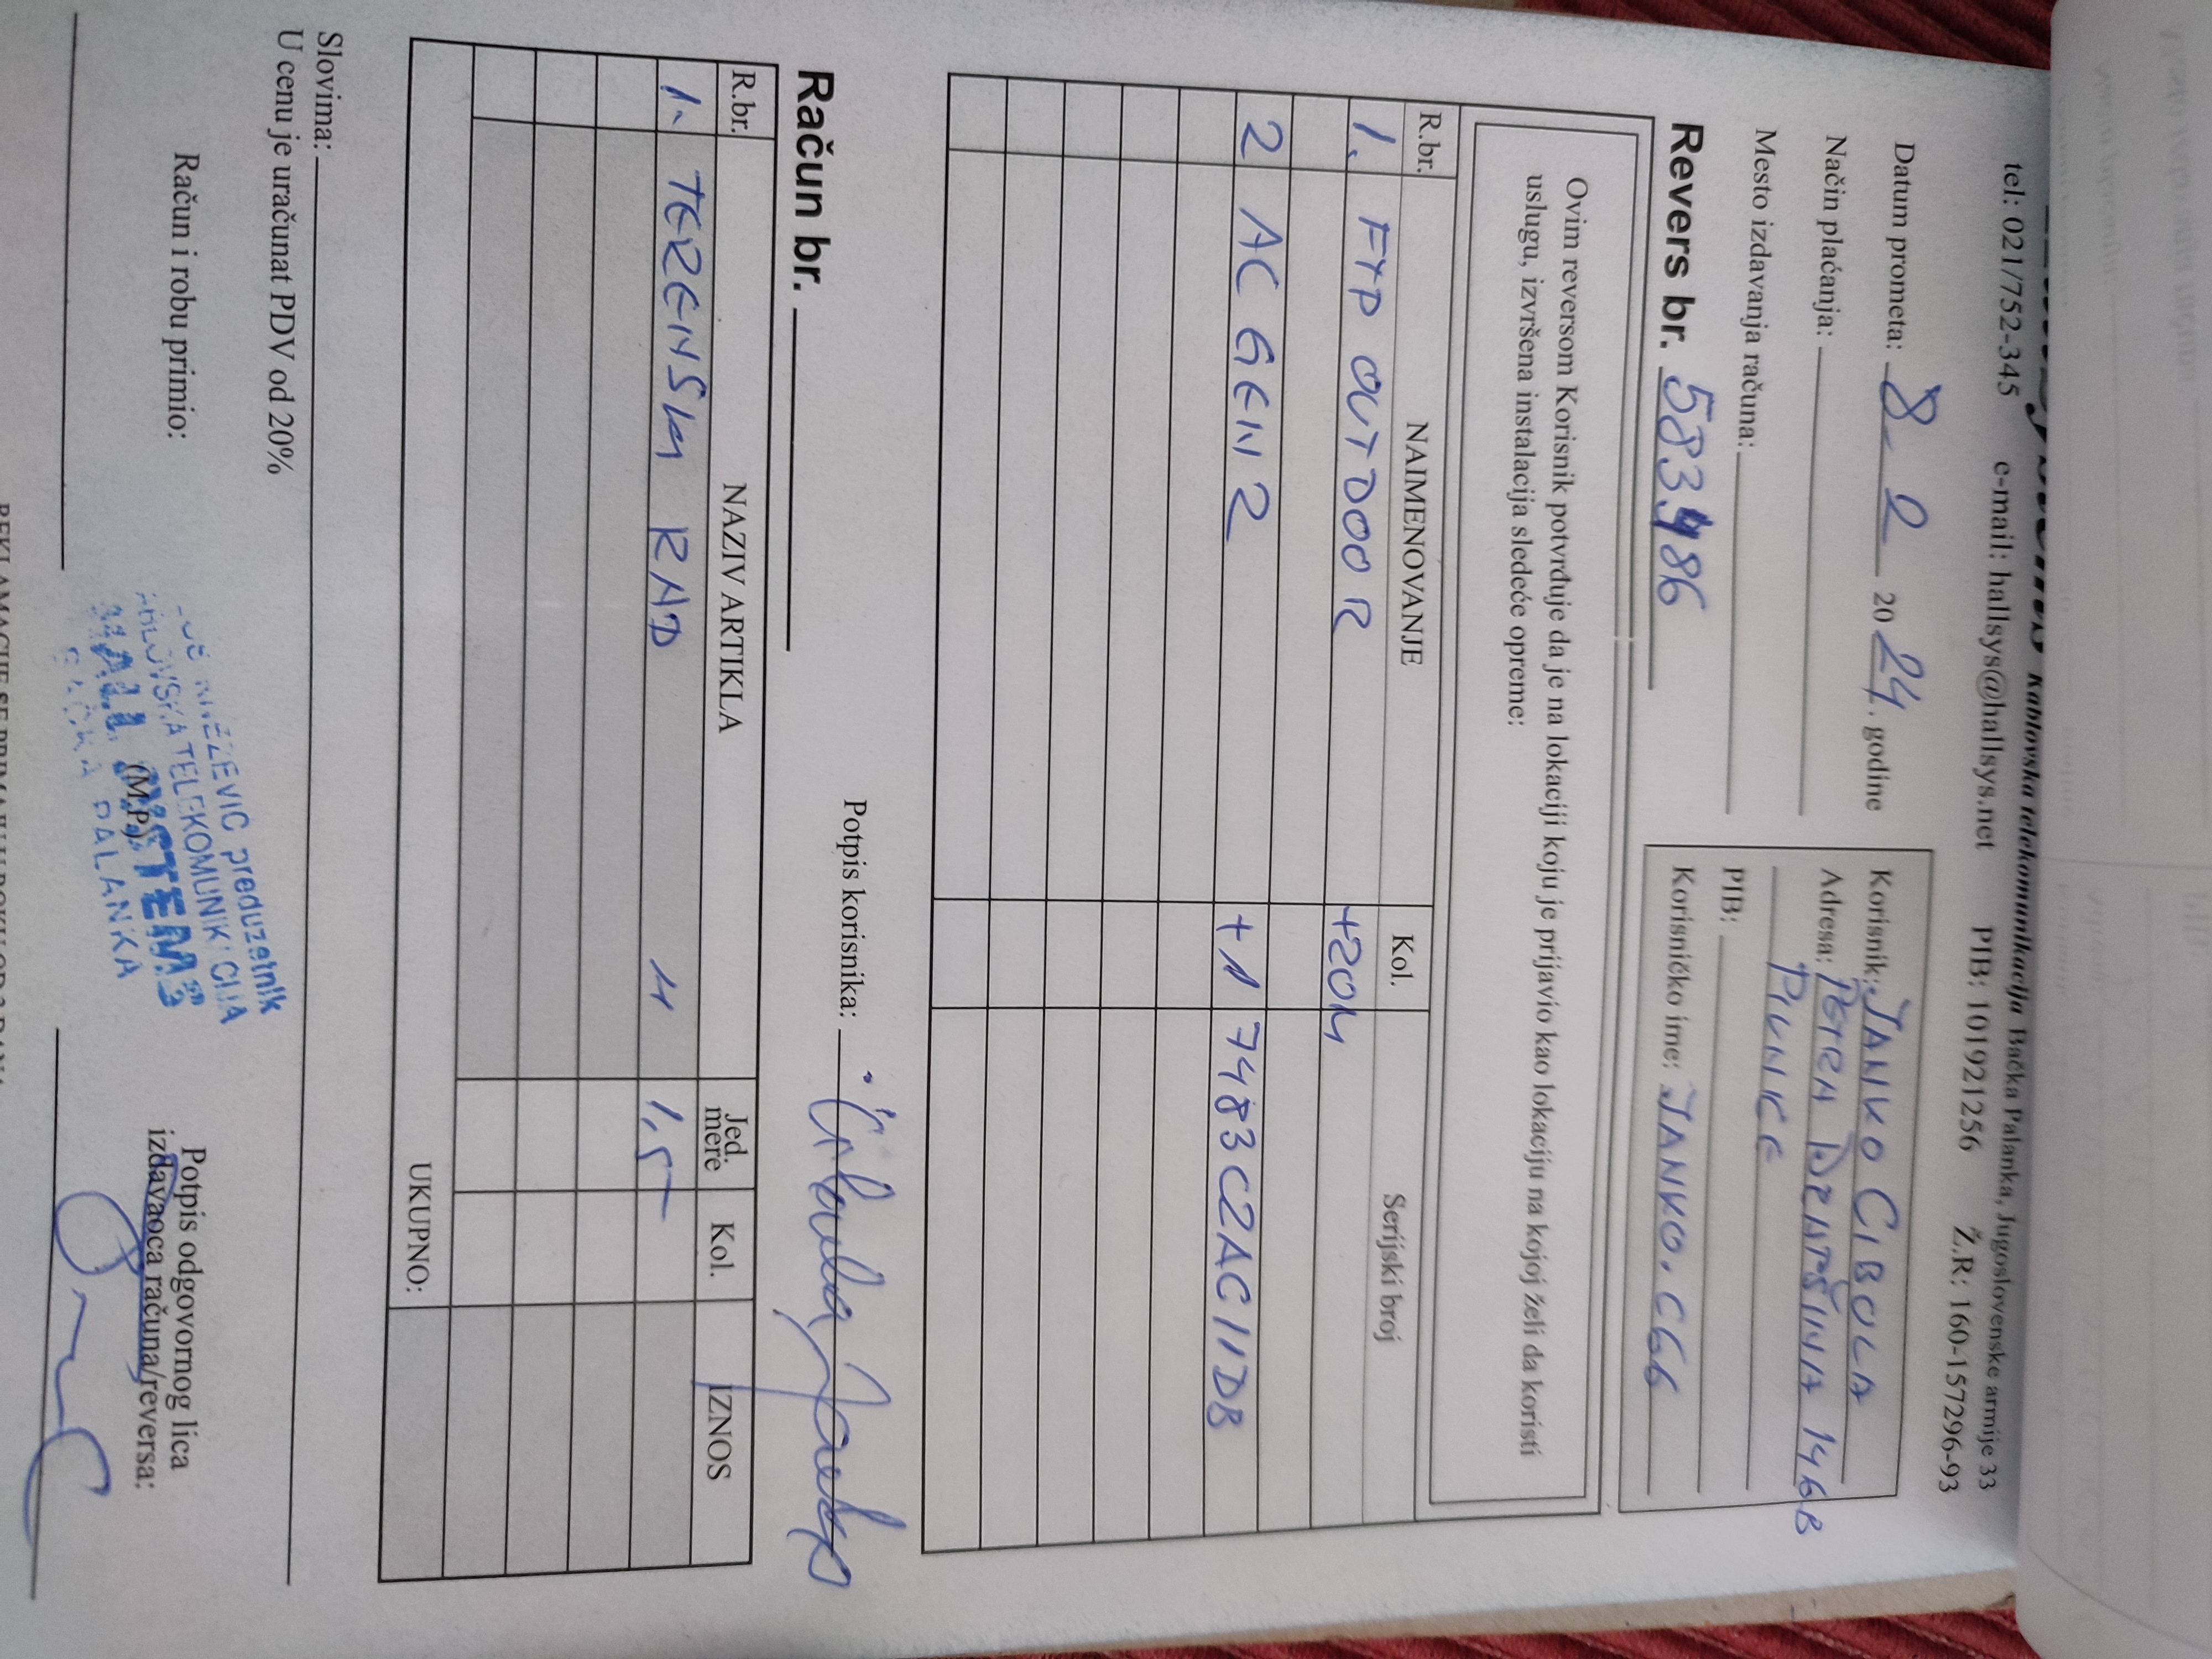 kablovska telekomunikacija Bačka Palanka, Jugoslovenske armije 33
tel: 021/752-345 e-mail: hallsys@hallsys.net PIB: 101921256 Ž.R: 160-157296-93
Datum prometa: 8. 2 2024. godine
Način plaćanja:
Mesto izdavanja računa:
Korisnik: JANKO CIBULA
Adresa: PETRA DRAPŠINA 146B
PIVNICE
PIB:
Korisničko ime: JANKO.C66
Revers br. 583486
Ovim reversom Korisnik potvrđuje da je na lokaciji koju je prijavio kao lokaciju na kojoj želi da koristi
uslugu, izvršena instalacija sledeće opreme:
R.br. NAIMENOVANJE Kol. Serijski broj
1. FTP OUTDOOR +20M
2 AC GEN2 +1 7483C2AC11DB
Potpis korisnika: Cibula Janko
Račun br.
R.br. NAZIV ARTIKLA Jed. mere Kol. IZNOS
1. TERENSKI RAD H 1,5
UKUPNO:
Slovima:
U cenu je uračunat PDV od 20%
Račun i robu primio:
preduzetnik
TELEKOMUNIKACIJA
HALL SYSTEMS
BAČKA PALANKA
(M.P.)
Potpis odgovornog lica
izdavaoca računa/reversa: